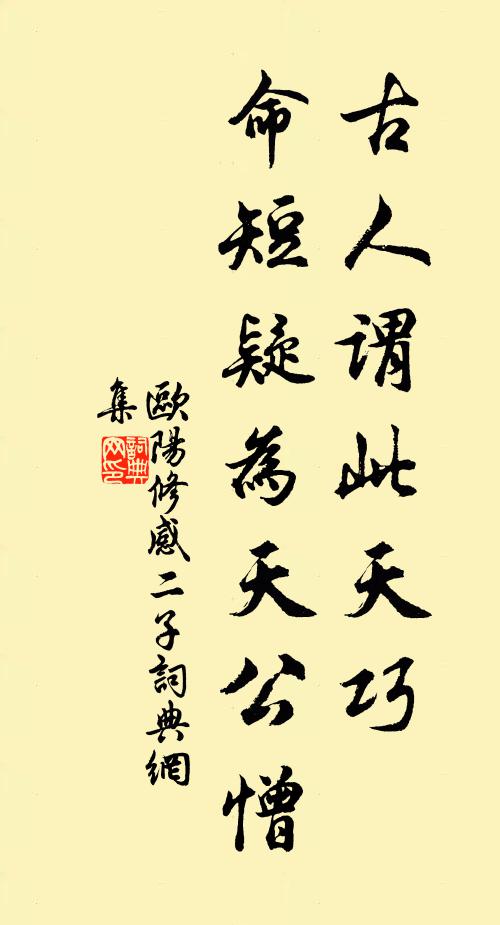 古人謂此天巧
命短疑為天公憎
歐陽修感二子詞典網
集
詞典
网印